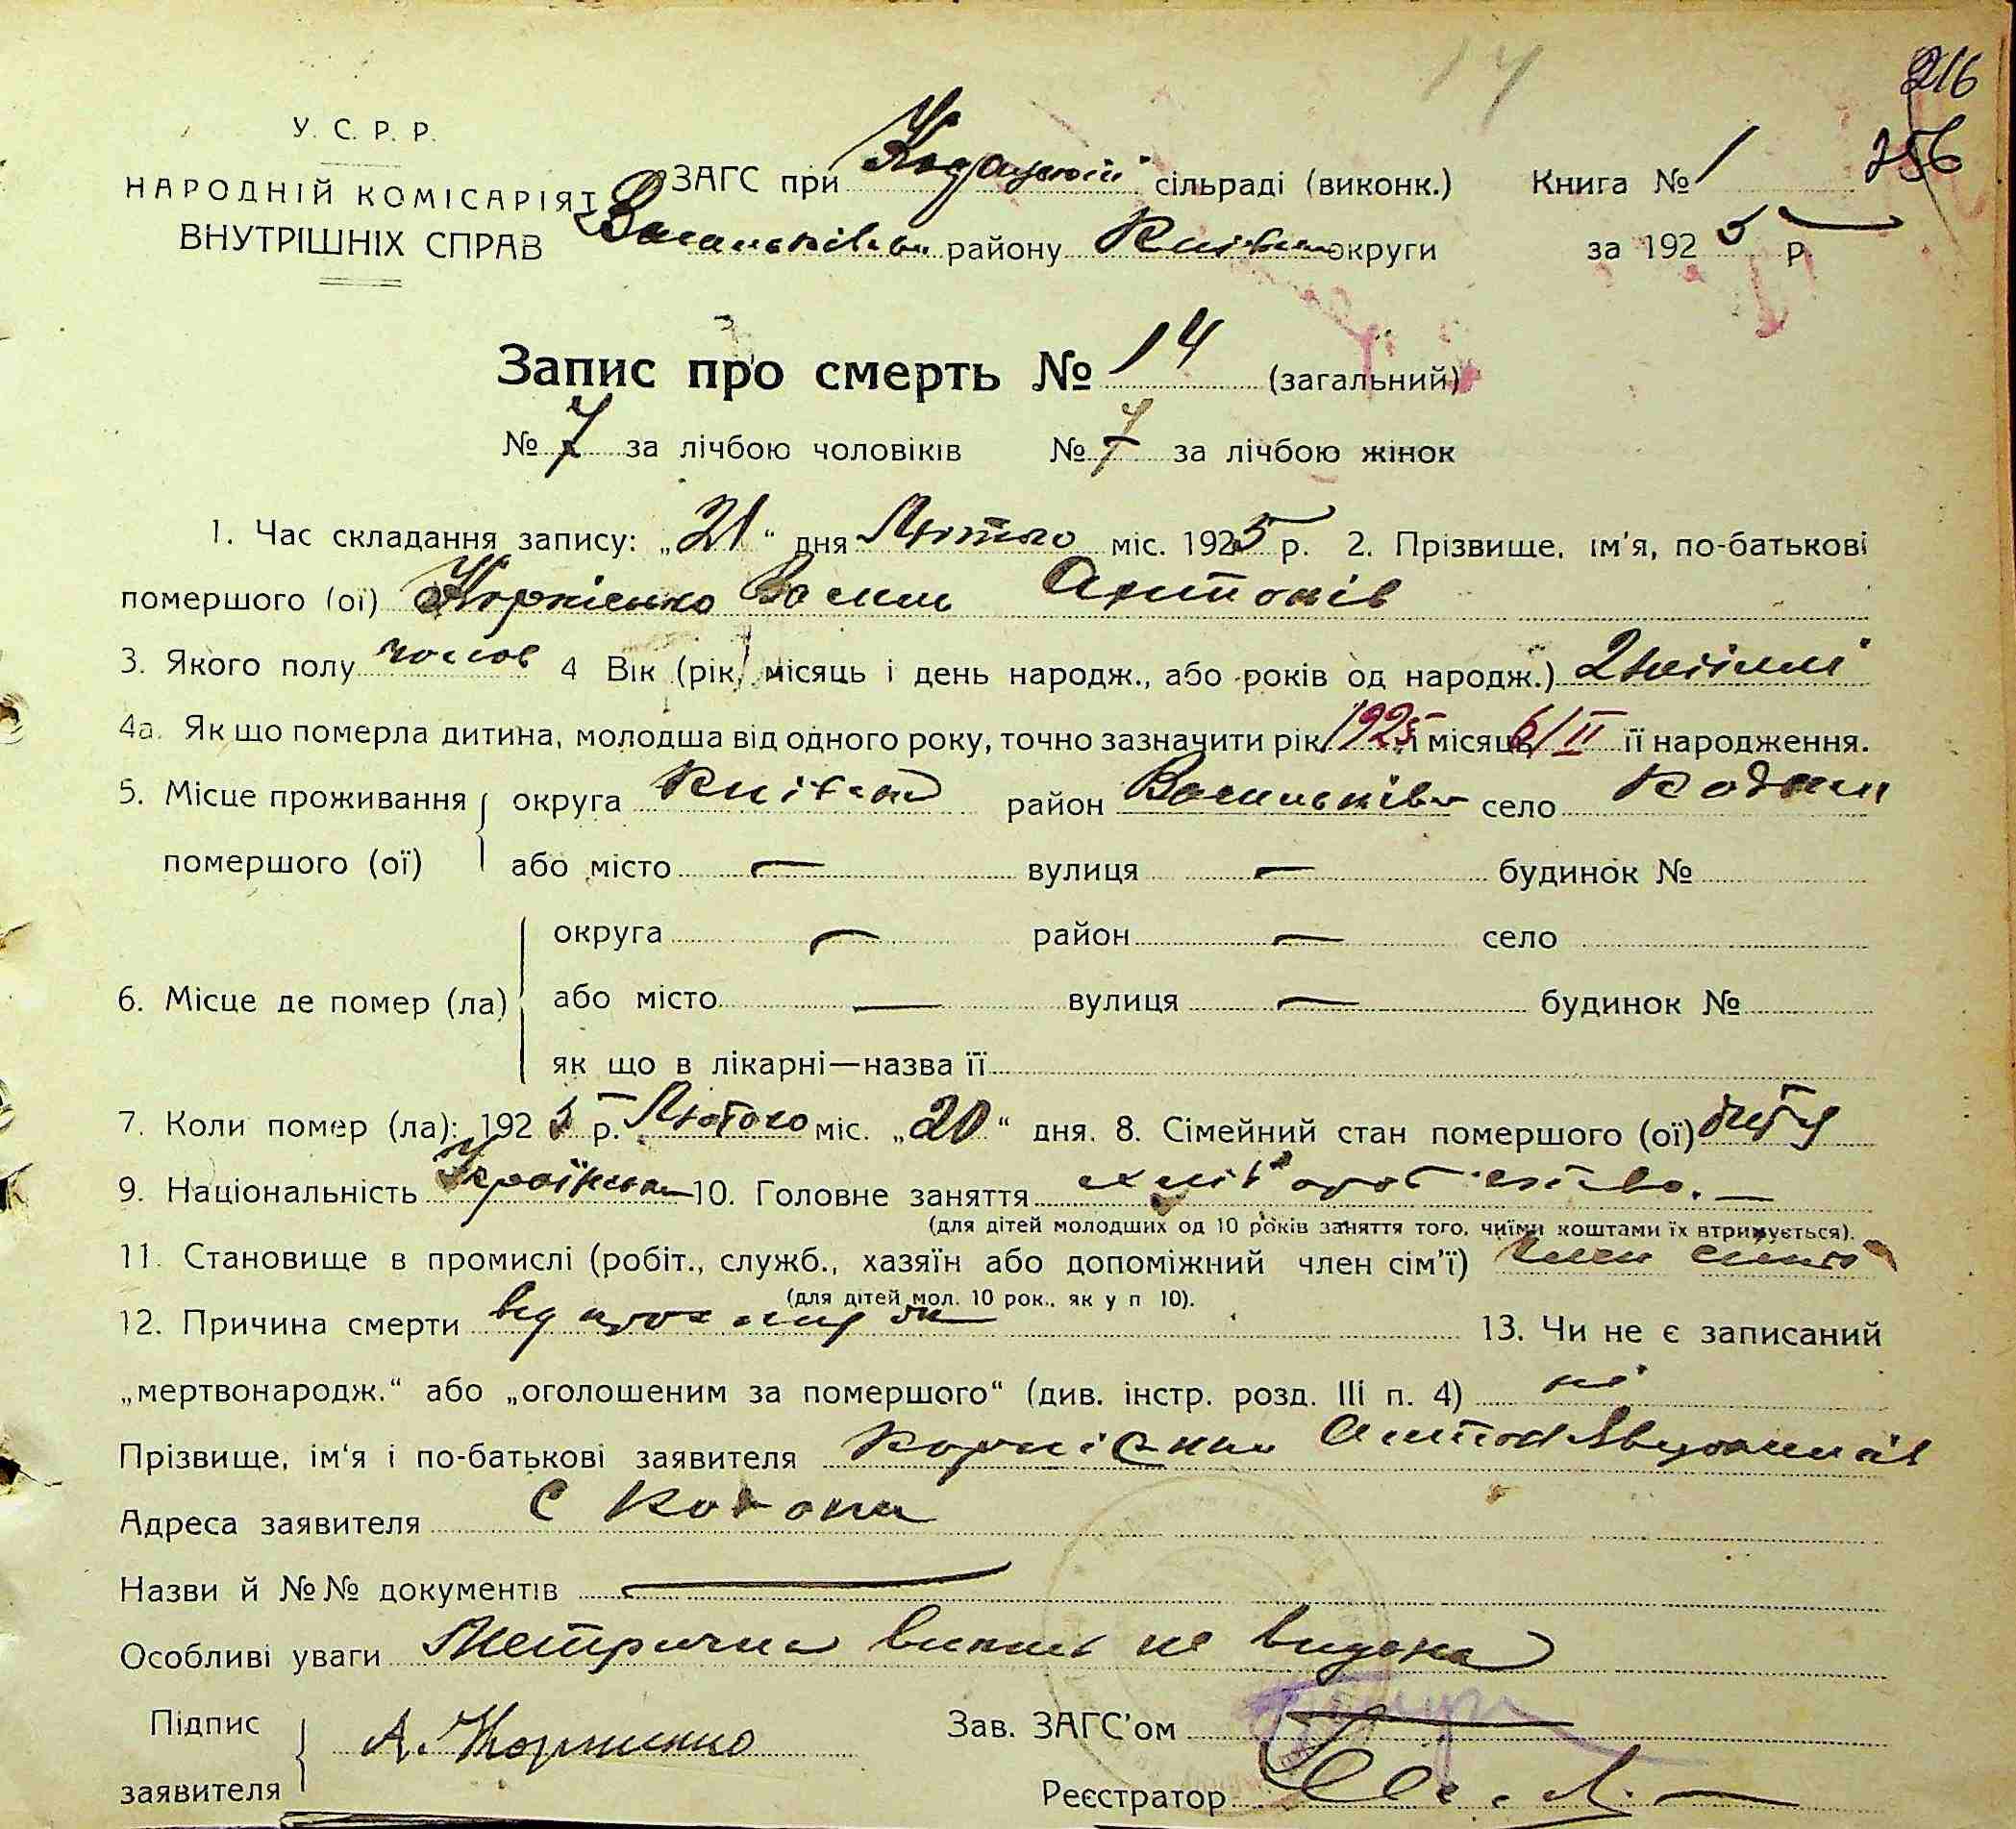 14
216
256
У. С. Р. Р.
НАРОДНІЙ КОМІСАРІЯТ
ВНУТРІШНІХ СПРАВ
ЗАГС при Кодацькій сільраді (виконк.) Книга № 1
Васильківськ. району Київськ округи за 1925 р.
Запис про смерть № 14 (загальний)
№ 7 за лічбою чоловіків № 7 за лічбою жінок
1. Час складання запису: „21“ дня Лютого міс. 1925 р. 2. Прізвище, ім'я, по-батькові
помершого (ої) Корнієнко Василь Антонів
3. Якого полу чолов 4 Вік (рік, місяць і день народж., або років од народж.) 2 неділі
4а. Як що померла дитина, молодша від одного року, точно зазначити рік 1925 і місяць 6/II її народження.
5. Місце проживання округа район Васильків село
помершого (ої) або місто — вулиця — будинок №
округа — район — село
6. Місце де помер (ла) або місто — вулиця — будинок №
як що в лікарні—назва її
7. Коли помер (ла): 1925 р. Лютого міс. „20“ дня. 8. Сімейний стан помершого (ої) дитя
9. Національність 10. Головне заняття хліборобство. —
(для дітей молодших од 10 років заняття того, чиїми коштами їх втримується).
11. Становище в промислі (робіт., служб., хазяїн або допоміжний член сім'ї) член сімьї
(для дітей мол. 10 рок., як у п 10).
12. Причина смерти від 13. Чи не є записаний
„мертвонародж.“ або „оголошеним за помершого“ (див. інстр. розд. III п. 4) ні
Прізвище, ім'я і по-батькові заявителя Корнієнко Антон
Адреса заявителя С
Назви й №№ документів —
Особливі уваги Метрична випись не видана
Підпис
заявителя А. Корниенко Зав. ЗАГС'ом
Реєстратор